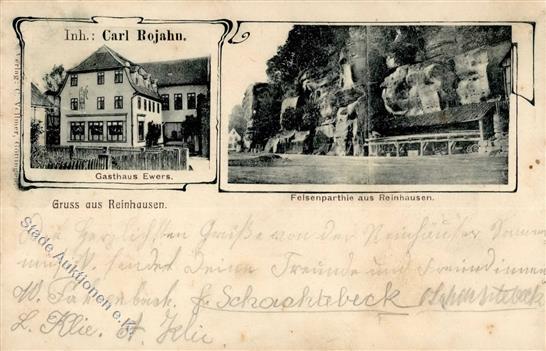 Inh.: Carl Rojahn.
Gasthaus Ewers.
Felsenparthie aus Reinhausen.
Gruss aus Reinhausen.
Stade Auktionen e.K.
Die Herzlichsten Grüße von der Reinhäuser
sendet Deine Freunde und Freundinnen
W. F. Schachtebeck Schachtebeck
L. Klie. A. Klie